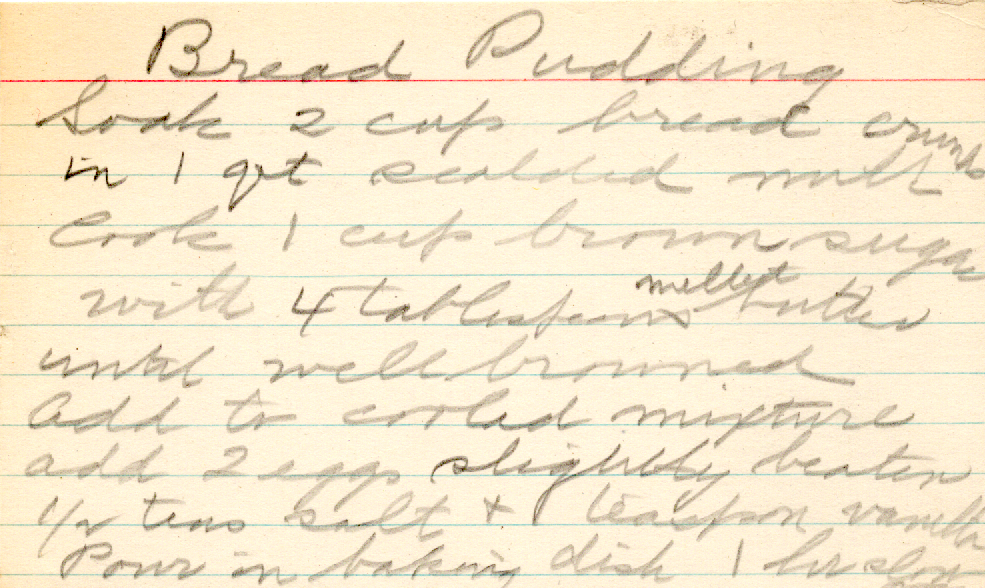 Bread Pudding
Soak 2 cup bread crumbs
in 1 qt scalded milk
Cook 1 cup brown sugar
with 4 tablespoons melted butter
until well browned
add to cooled mixture
add 2 eggs slightly beaten
1/2 teas salt + 1 teaspoon vanilla
Pour in baking dish 1 hr slow